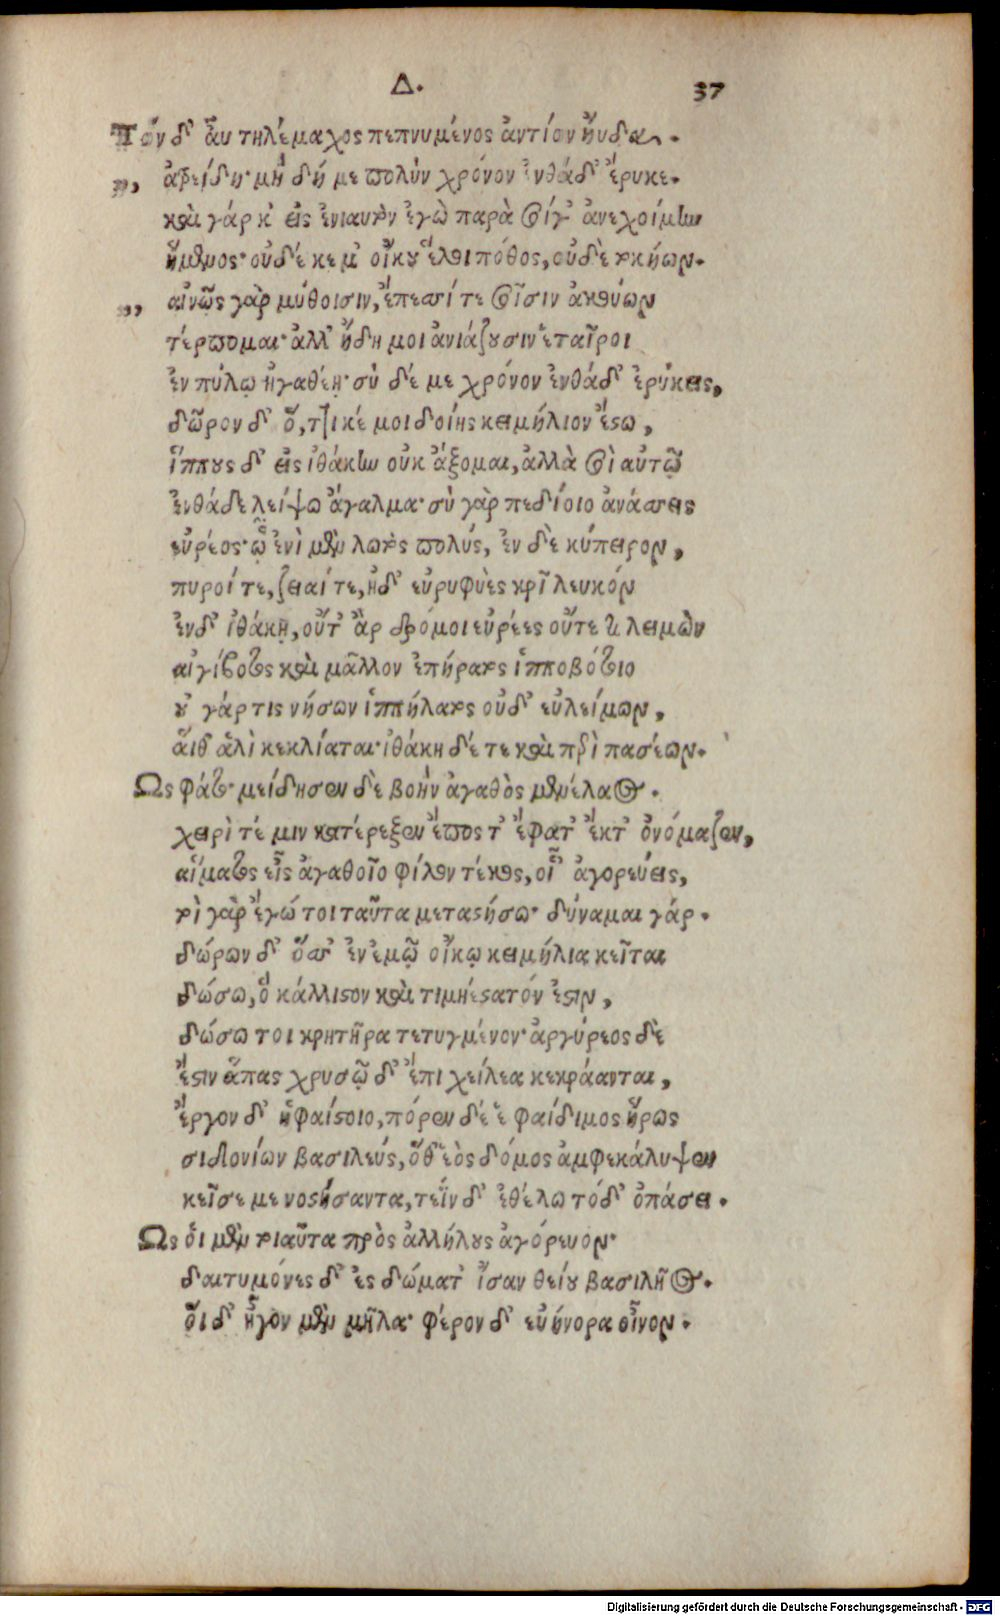 Δ. 37
Τὸν δ' ἂυ τηλέμαχος πεπνυμένος ἀντίον ηὔδα.
„ ἀτρείδη· μὴ δή με πολὺν χρόνον ἐνθάδ' ἔρυκε.
καὶ γάρ κ' εἰς ἐνιαυτὸν ἐγὼ παρὰ σοίγ' ἀνεχοίμην
ἥμενος· οὐδέ κε μ' οἴκου ἕλοι πόθος, οὐδὲ τοκήων.
„ αἰνῶς γὰρ μύθοισιν, ἔπεσσί τε σοῖσιν ἀκούων
τέρπομαι· ἀλλ' ἤδη μοι ἀνιάζουσιν ἑταῖροι
ἐν πύλῳ ἠγαθέῃ· σὺ δέ με χρόνον ἐνθάδ' ἐρύκεις,
δῶρον δ' ὅ, τ]ι κέ μοι δοίης κειμήλιον ἔστω,
ἵππους δ' εἰς ἰθάκην οὐκ ἄξομαι, ἀλλὰ σοὶ αὐτῷ
ἐνθάδε λείψω ἄγαλμα· σὺ γὰρ πεδίοιο ἀνάσσεις
εὐρέος· ᾧ ἐνὶ μὲν λωτὸς πολύς, ἐν δὲ κύπειρον,
πυροί τε, ζειαί τε, ἠδ' εὐρυφυὲς κρῖ λευκόν
ἐν δ' ἰθάκῃ, οὔτ' ἂρ δρόμοι εὐρέες οὔτε τι λειμὼν
αἰγίβοτος καὶ μᾶλλον ἐπήρατος ἱπποβότοιο
οὐ γάρ τις νήσων ἱππήλατος οὐδ' εὐλείμων,
αἵθ' ἁλὶ κεκλίαται· ἰθάκη δέ τε καὶ περὶ πασέων.
Ὣς φάτο· μείδησεν δὲ βοὴν ἀγαθὸς μενέλαος.
χειρὶ τέ μιν κατέρεξεν ἔπος τ' ἔφατ' ἔκτ' ὀνόμαζεν,
αἵματος εἶς ἀγαθοῖο φίλον τέκος, οἷ' ἀγορεύεις,
τοὶ γὰρ ἐγώ τοι ταῦτα μεταστήσω· δύναμαι γάρ.
δώρων δ' ὅσσ' ἐν ἐμῷ οἴκῳ κειμήλια κεῖται
δώσω, ὃ κάλλιστον καὶ τιμηέστατόν ἐστιν,
δώσω τοι κρητῆρα τετυγμένον· ἀργύρεος δὲ
ἔστιν ἅπας χρυσῷ δ' ἔπι χείλεα κεκράανται,
ἔργον δ' ἡφαίστοιο, πόρεν δέ ἑ φαίδιμος ἥρως
σιδονίων βασιλεύς, ὅθ' ἑὸς δόμος ἀμφεκάλυψεν
κεῖσε με νοστήσαντα, τεΐν δ' ἐθέλω τόδ' ὀπάσσαι.
Ὣς ὁι μὲν τοιαῦτα πρὸς ἀλλήλους ἀγόρευον·
δαιτυμόνες δ' ἐς δώματ' ἴσαν θείου βασιλῆος.
ὅι δ' ἦγον μὲν μῆλα· φέρον δ' εὐήνορα οἶνον.
Digitalisierung gefördert durch die Deutsche Forschungsgemeinschaft - DFG